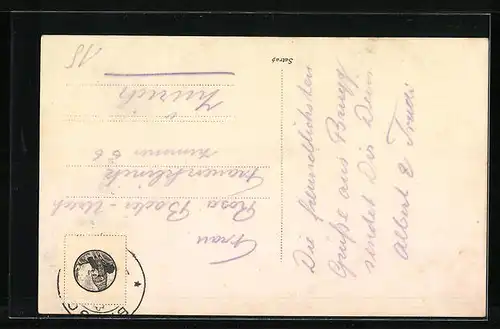 Die freundlichsten
Grüße aus Brugg
sendet Dir Dein
Albert & Trudi
Satrap
Frau
Rosa
Frauenklinik
Zimmer 66
Zürich
15